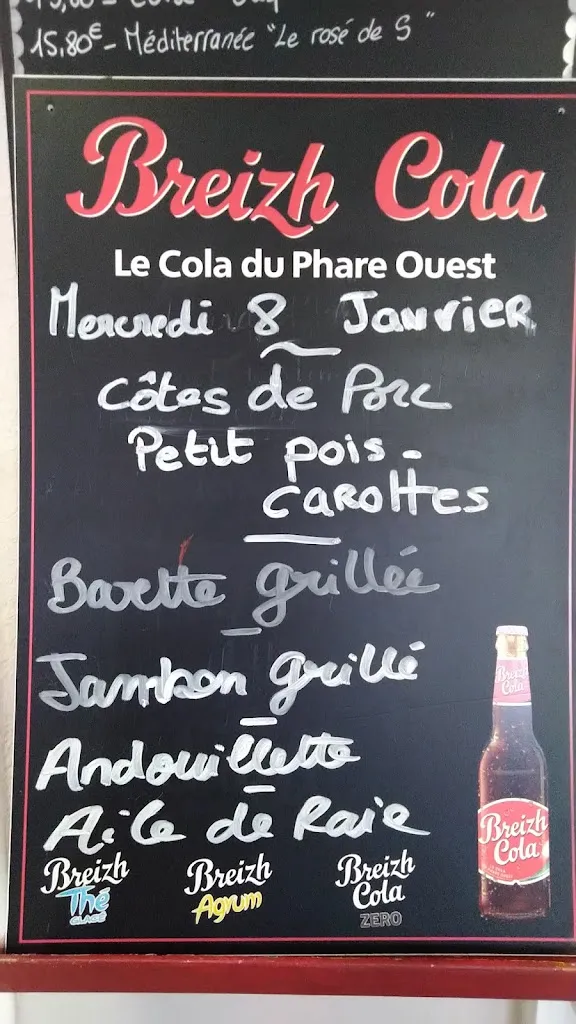 15,80€ - Méditerranée "Le rosé de S"
Breizh Cola
Le Cola du Phare Ouest
Mercredi 8 Janvier
Côtes de Porc
Petit pois -
carottes
Bavette grillée
Jambon grillé
Andouillette
Aile de Raie
Breizh
Cola
Breizh
Cola
Breizh
Thé
GLACÉ
Breizh
Agrum
Breizh
Cola
ZERO